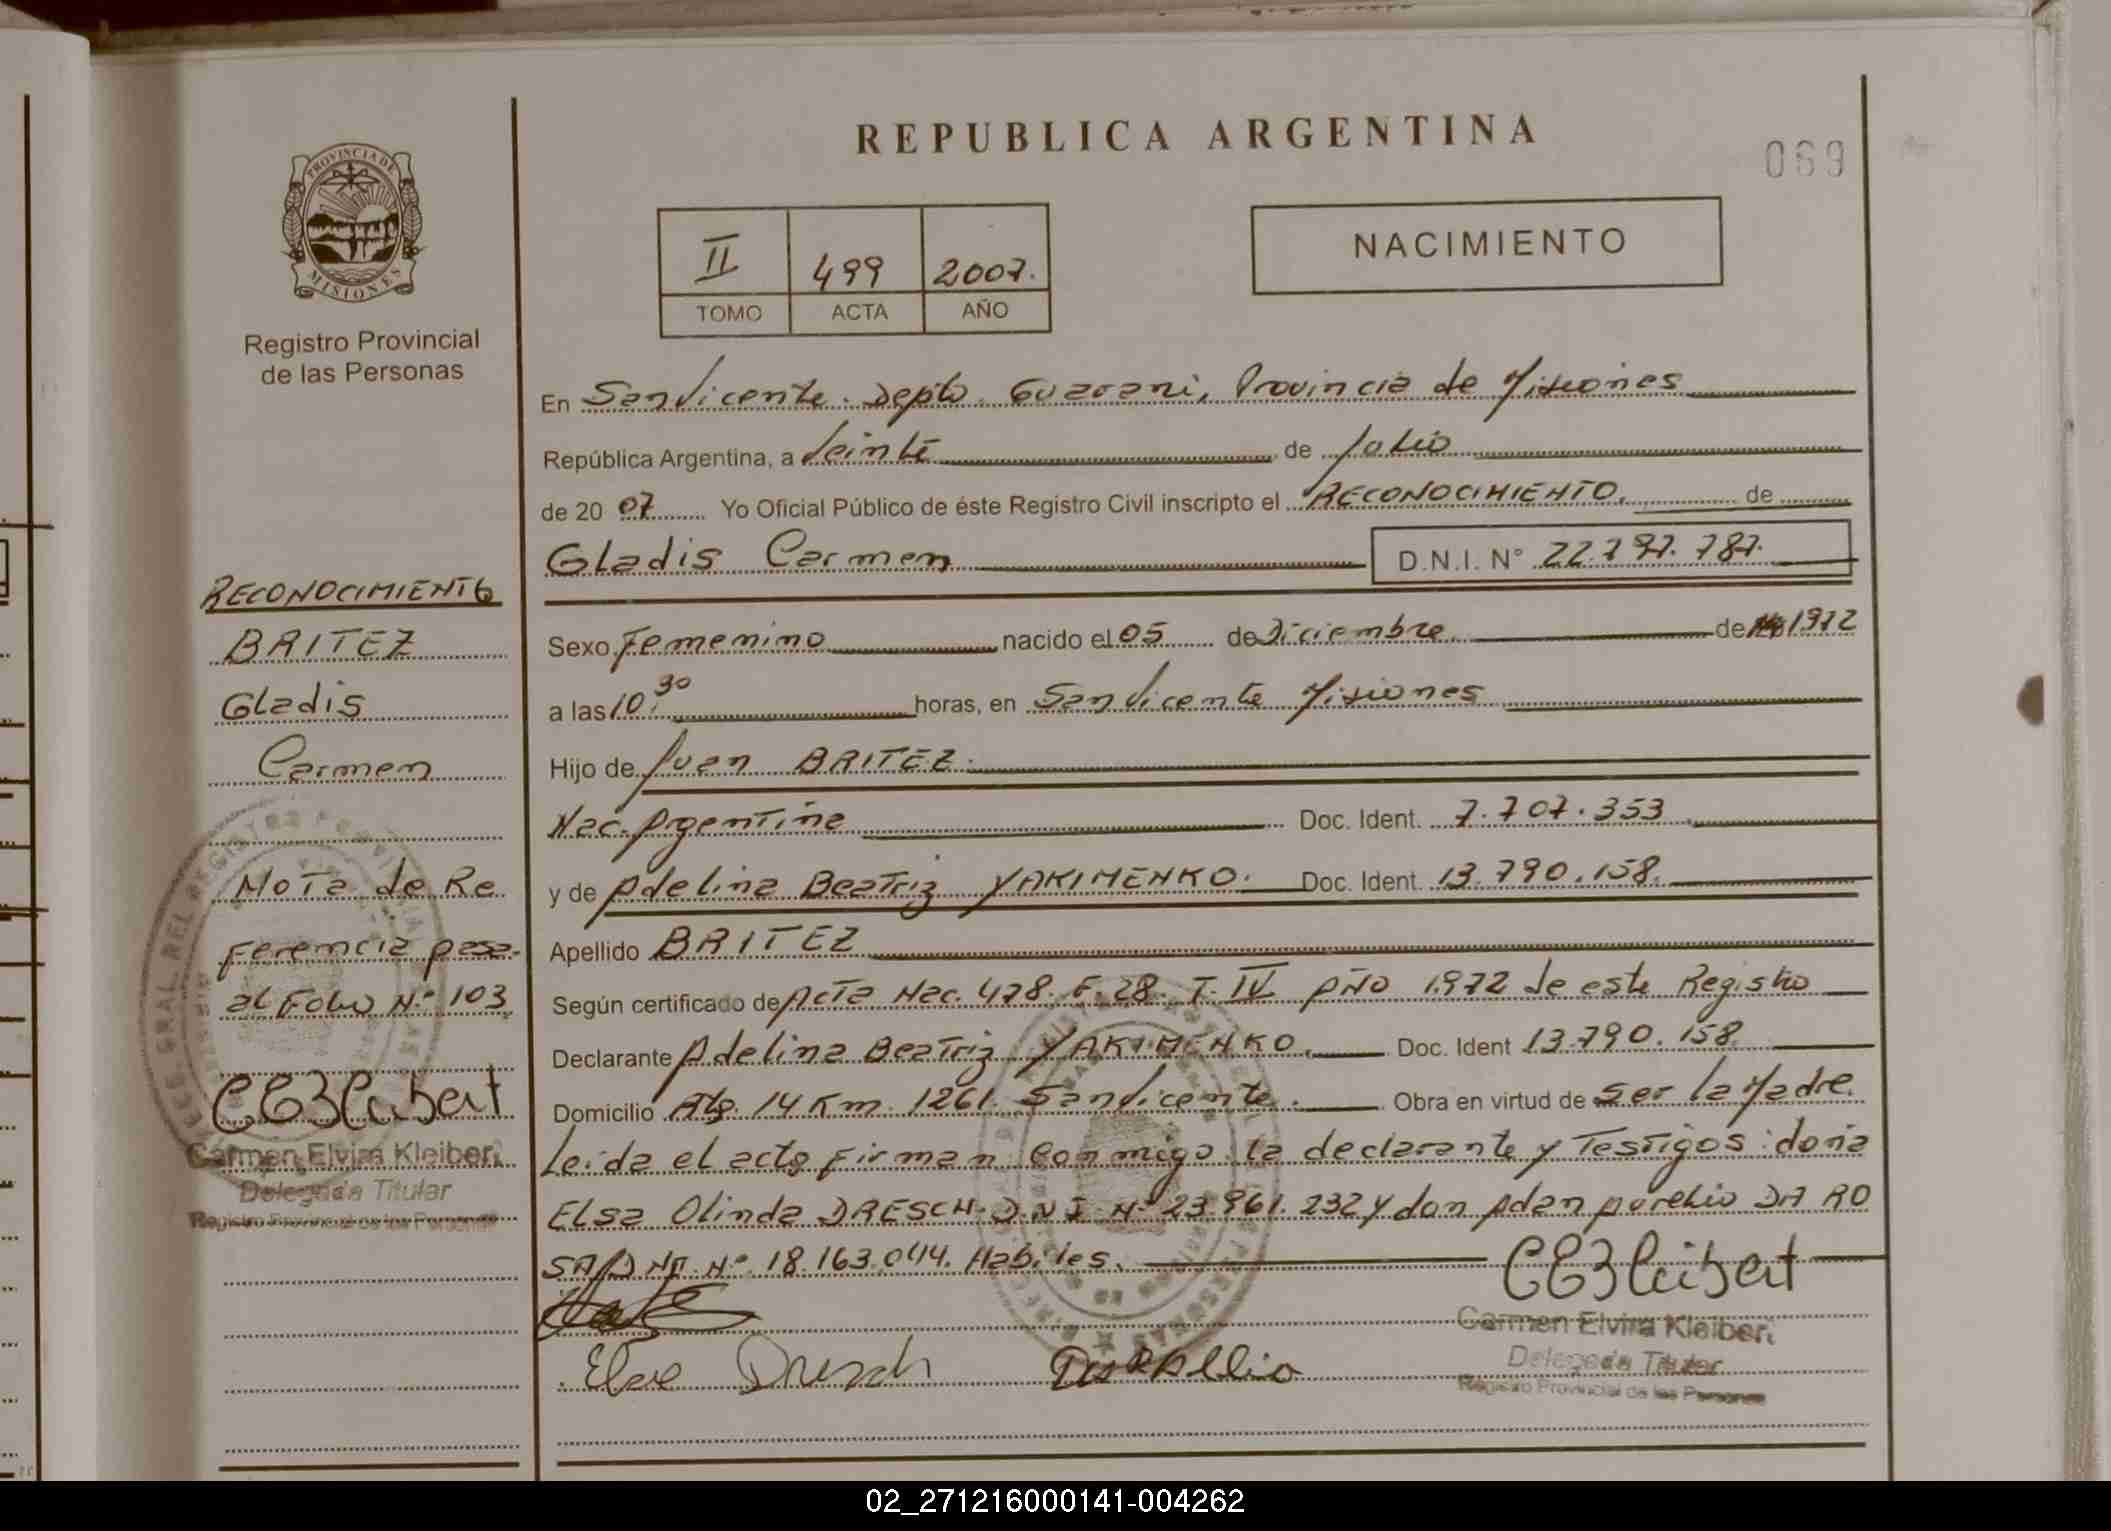 REPUBLICA ARGENTINA
069
PROVINCIA DE
MISIONES
Registro Provincial
de las Personas
II 499 2007.
TOMO ACTA AÑO
NACIMIENTO
En San Vicente. Depto. Guarani, Provincia de Misiones
República Argentina, a Veinte de Julio
de 2007 Yo Oficial Público de éste Registro Civil inscripto el RECONOCIMIENTO. de
Gladis Carmen D.N.I. N° 22.797.787.
Sexo Femenino nacido el 05 de Diciembre de 1972
a las 10:30 horas, en San Vicente Misiones
Hijo de Juan BRITEZ.
Nac. Argentina Doc. Ident. 7.707.353
y de Adelina Beatriz YAKIMENKO. Doc. Ident. 13.790.158.
Apellido BRITEZ
Según certificado de Acta Nac. 478. F. 28. T. IV AÑO 1972 de este Registro
Declarante Adelina Beatriz YAKIMENKO. Doc. Ident 13.790.158
Domicilio 14 Km. 1261. San Vicente. Obra en virtud de ser la Madre.
Leida el acta firman conmigo la declarante y Testigos: doña
Elsa Olinda DRESCH. D.N.I. N° 23.961.232 y don Adan Aurelio DA RO
SA D.N.I. N° 18.163.044. Habiles.
Elsa Dresch
Carmen Elvira Kleiber
Delegada Titular
Registro Provincial de las Personas
RECONOCIMIENTO
BRITEZ
Gladis
Carmen
Nota de Re
ferencia pasa
al Folio N° 103
Carmen Elvira Kleiber
Delegada Titular
Registro Provincial de las Personas
02_271216000141-004262